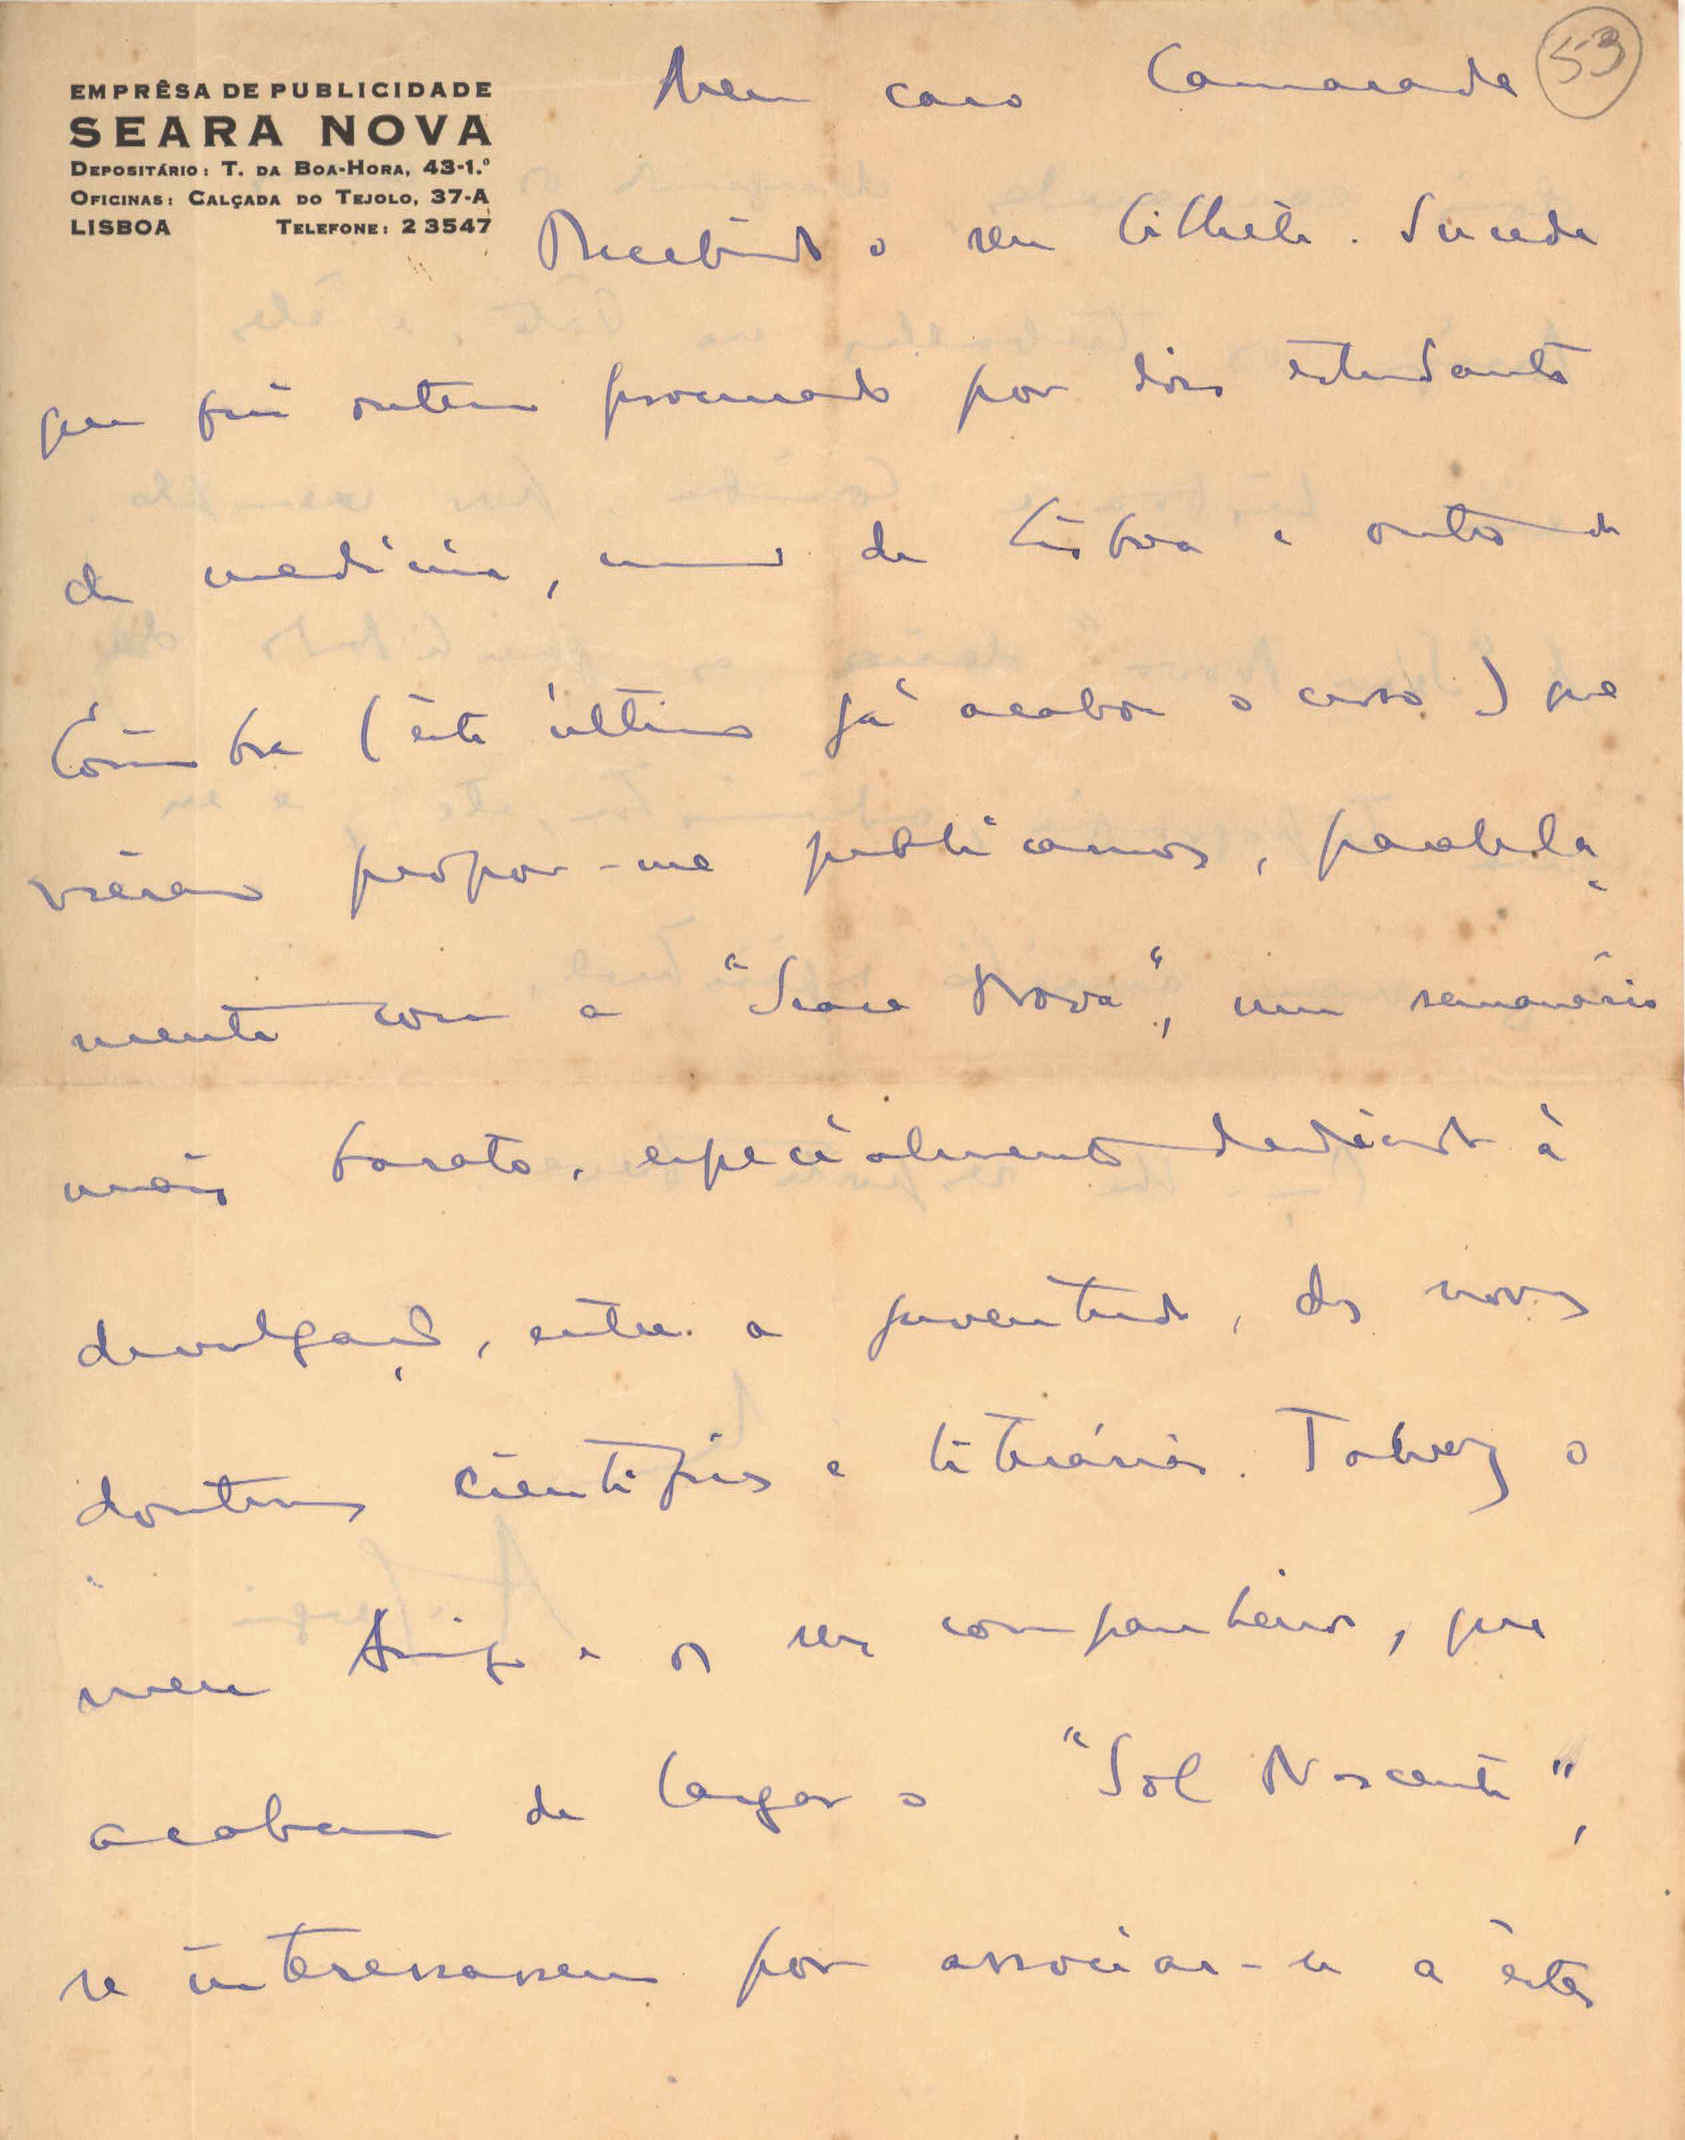 53
EMPRÊSA DE PUBLICIDADE
SEARA NOVA
DEPOSITÁRIO: T. DA BOA-HORA, 43-1.º
OFICINAS: CALÇADA DO TEJOLO, 37-A
LISBOA TELEFONE: 2 3547
Meu caro Camarada
Recebido o seu bilhete. Sucede
que fui ontem procurado por dois estudantes
de medicina, um de Lisboa e outro de
Coimbra (êste último já acabou o curso) que
vieram propor-me publicarmos, paralela
mente com a "Seara Nova", um semanário
mais barato, especialmente dedicado à
divulgação, entre a juventude, das novas
doutrinas científicas e literárias. Talvez o
meu Amigo e os seus companheiros, que
acabam de lançar o "Sol Nascente",
se interessassem por associar-se a êstes